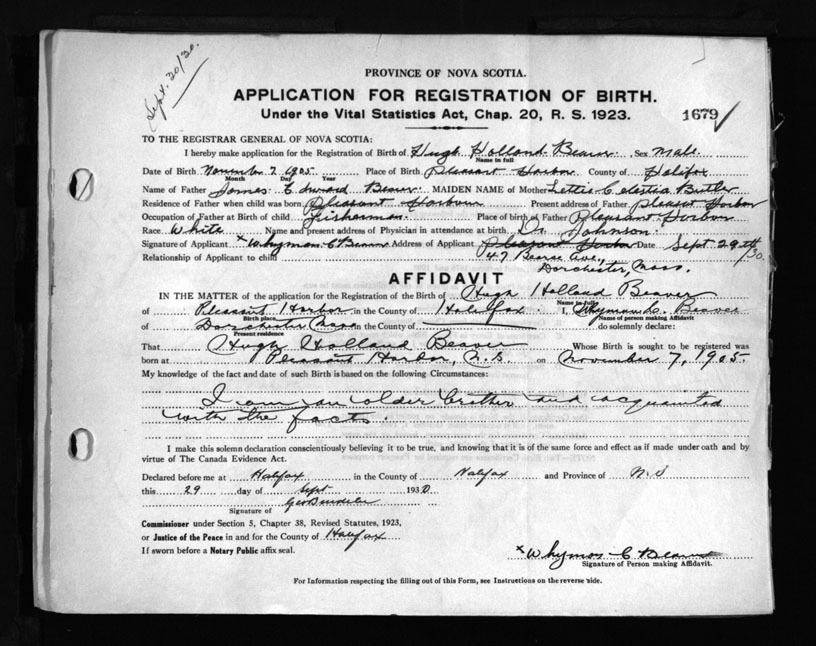 Sept. 20/30.
PROVINCE OF NOVA SCOTIA.
APPLICATION FOR REGISTRATION OF BIRTH.
Under the Vital Statistics Act, Chap. 20, R. S. 1923.
1679
TO THE REGISTRAR GENERAL OF NOVA SCOTIA:
I hereby make application for the Registration of Birth of Hugh Holland Beaver, Sex Male
Name in full
Date of Birth November 7, 1905 Place of Birth Pleasant Harbor County of Halifax
Month Day Year
Name of Father James Edward Beaver MAIDEN NAME of Mother Lettie Celestia Butler
Residence of Father when child was born Pleasant Harbour Present address of Father Pleasant Harbor
Occupation of Father at Birth of child Fisherman. Place of birth of Father Pleasant Harbor
Race White Name and present address of Physician in attendance at birth Dr. Johnson.
Signature of Applicant x Whyman C Beaver Address of Applicant Pleasant Harbor Date Sept 29th/30.
Relationship of Applicant to child 47 Bearse Ave.,
Dorchester, Mass.
AFFIDAVIT
IN THE MATTER of the application for the Registration of the Birth of Hugh Holland Beaver
Name in full
of Pleasant Harbor in the County of Halifax. I, Whyman C. Beaver
Birth place Name of person making Affidavit
of Dorchester Mass in the County of do solemnly declare:
Present residence
That Hugh Holland Beaver Whose Birth is sought to be registered was
born at Pleasant Harbor, N.S. on November 7, 1905.
My knowledge of the fact and date of such Birth is based on the following Circumstances:
I am an older brother and acquainted
with the facts.
I make this solemn declaration conscientiously believing it to be true, and knowing that it is of the same force and effect as if made under oath and by
virtue of The Canada Evidence Act.
Declared before me at Halifax in the County of Halifax and Province of N.S
this 29 day of Sept 1930
Signature of Geo
Commissioner under Section 5, Chapter 38, Revised Statutes, 1923,
or Justice of the Peace in and for the County of Halifax
If sworn before a Notary Public affix seal.
x Whyman C Beaver
Signature of Person making Affidavit.
For Information respecting the filling out of this Form, see Instructions on the reverse side.